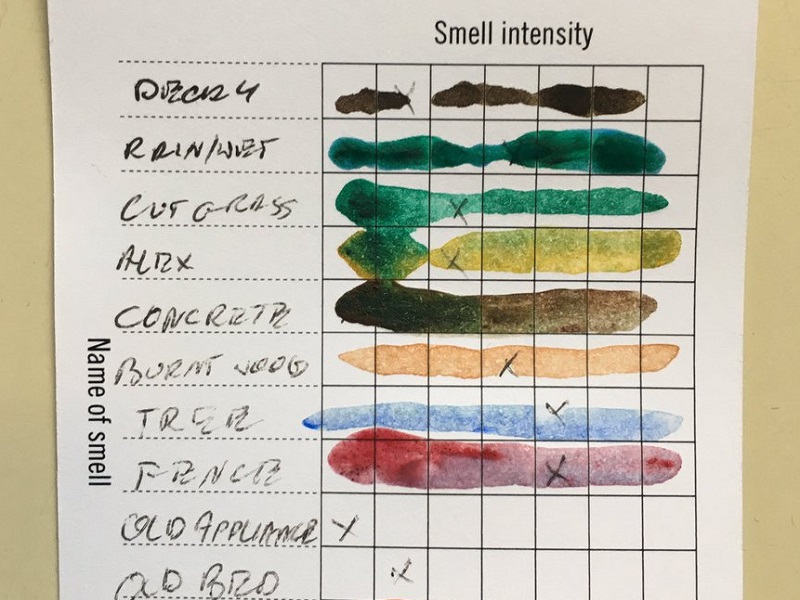 Smell intensity
DECAY
RAIN/WET
CUT GRASS
ALEX
CONCRETE
BURNT WOOD
TREE
FENCE
OLD APPLIANCE
OLD BED
Name of smell